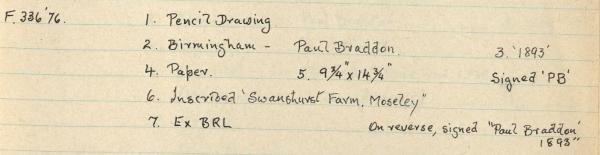 F.336'76. 1. Pencil Drawing
2. Birmingham - Paul Braddon. 3. '1893'
4. Paper. 5. 9¾" x 14¾" Signed 'PB'
6. Inscribed 'Swanshurst Farm, Moseley"
7. Ex BRL On reverse, signed "Paul Braddon'
1893"